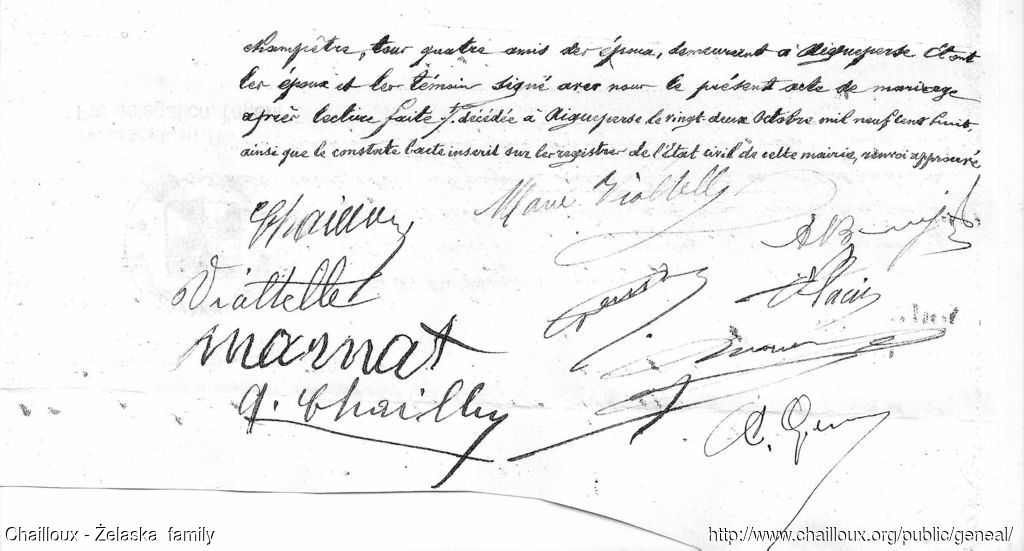 champêtre, tous quatre amis des époux, demeurant à Aigueperse et ont
les époux et les témoins signé avec nous le présent acte de mariage
après lecture faite. /. décédée à Aigueperse le vingt-deux Octobre mil neuf cent huit,
ainsi que le constate l'acte inscrit sur les registres de l'état civil de cette mairie, renvoi approuvé
Chailloux
Marie Viattelle
Viattelle
marnat
A. Chailloux
Chailloux - Żelaska family
http://www.chailloux.org/public/geneal/